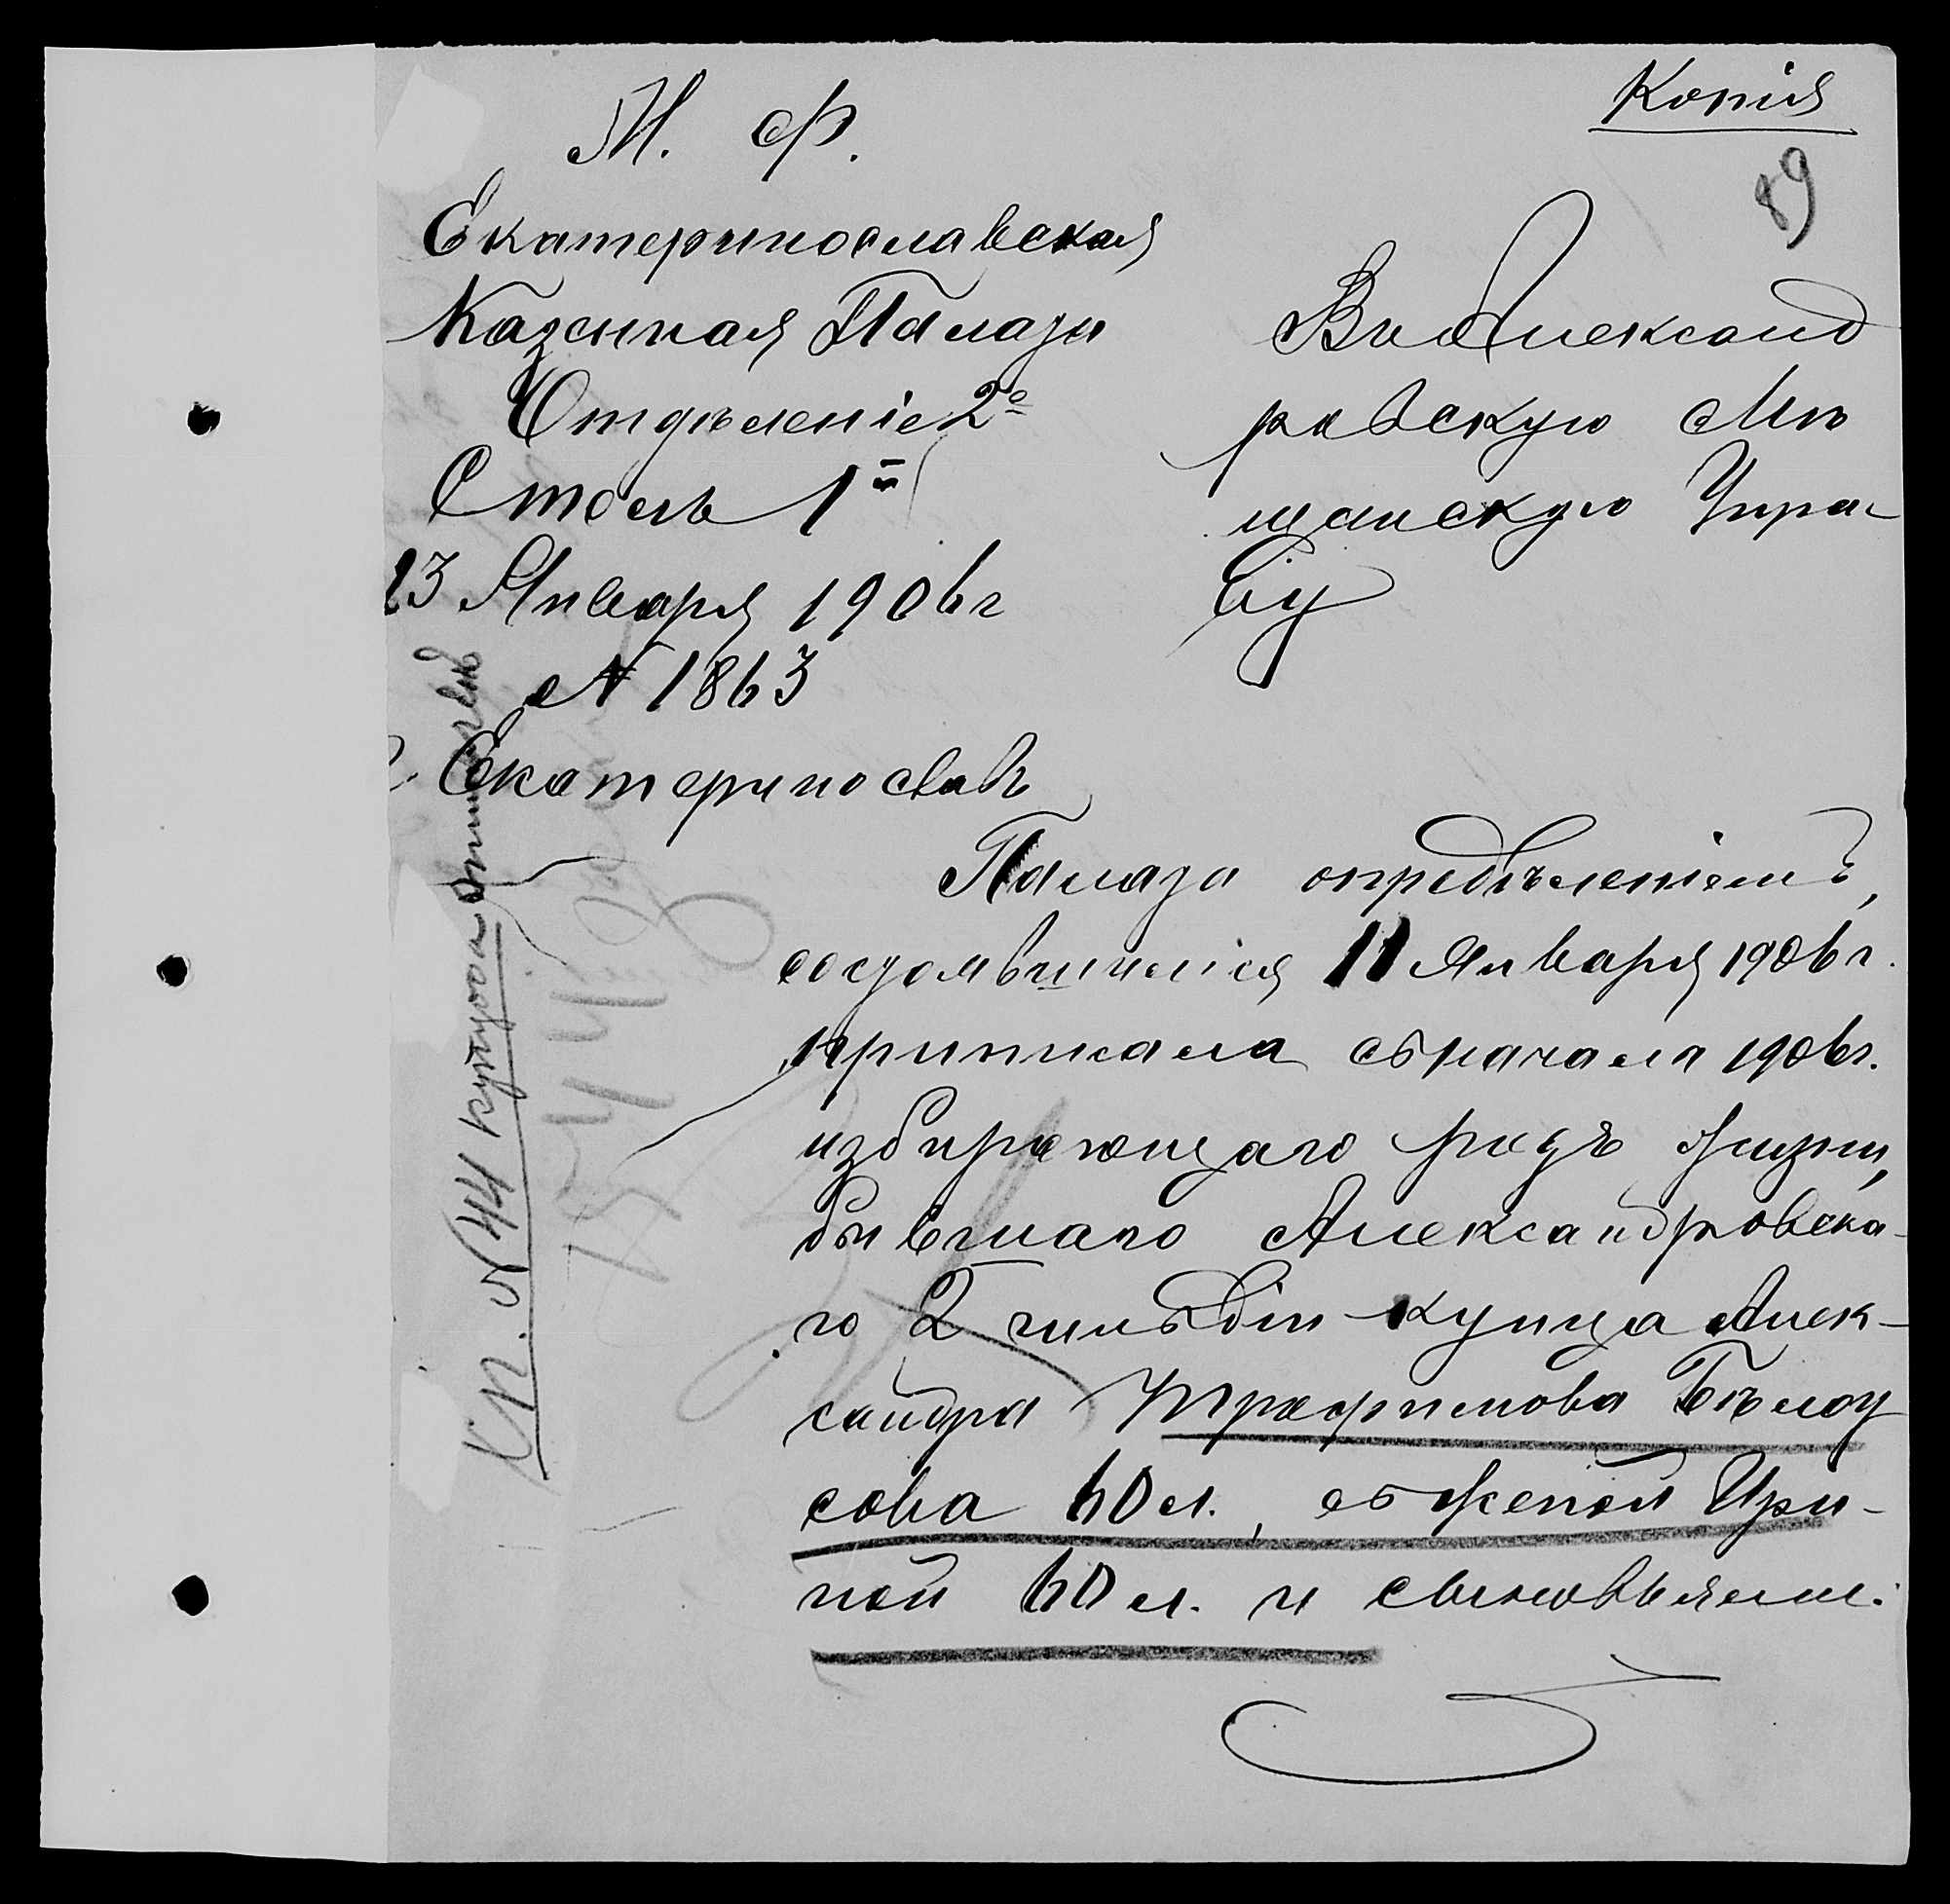 Копія
89
М. Ф.
Екатеринославская
Казенная Палата
Отдѣленіе 2е
Столъ 1й
13 Января 1906 г
№ 1863
Екатеринославъ
Въ Александ
ровскую Мѣ
щанскую Упра-
ву
Палата опредѣленіемъ,
состоявшимся 11 Января 1906 г.
причислила съ начала 1906 г.
избирающаго родъ жизни,
бывшаго Александровска-
го 2 гильдіи купца Алек-
сандра Трофимова Бѣлоу
сова 60 л., съ женой Ири-
ной 60 л. и сыновьями:
К.П. № 44